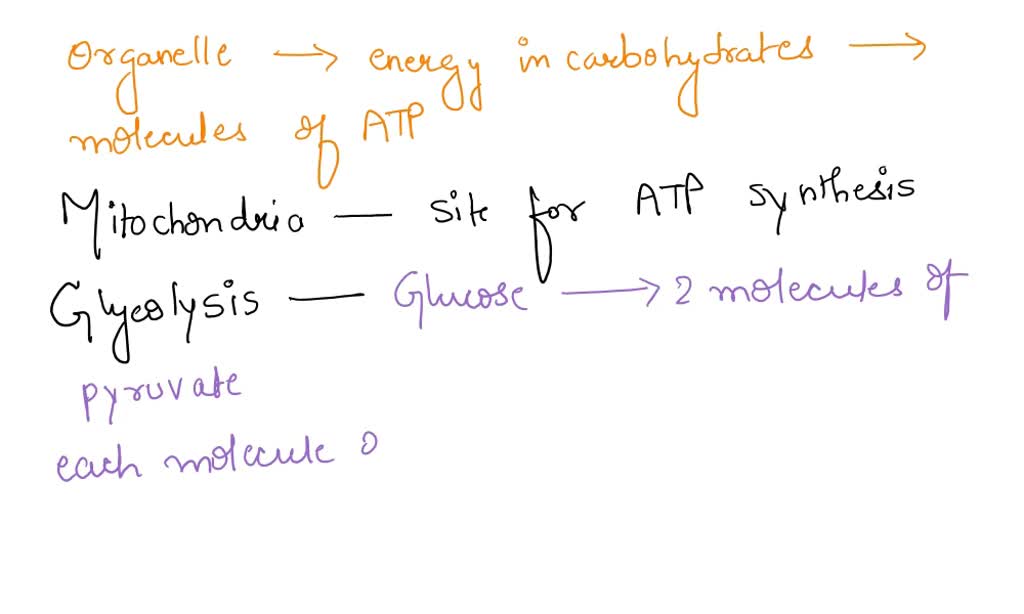 Organelle → energy in carbohydrates →
molecules of ATP
Mitochondria — site for ATP synthesis
Glycolysis — Glucose → 2 molecules of
pyruvate
each molecule o